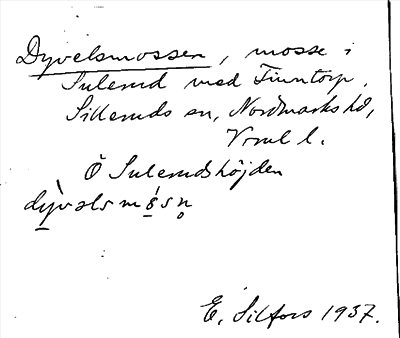 Dyvelsmossen, mosse i
Sulerud med Finntorp,
Silleruds sn, Nordmarks hd,
Vrml l.
Ö Sulerudshöjden
dỳ̱vəlsmó̱sn̥
E. Silfors 1937.